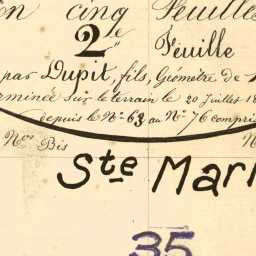 en cinq Feuilles
2e Feuille
par Dupit, fils, Géomètre de
erminée sur le terrain le 20 Juillet 18
depuis le N° 63 au N° 76 compris
Nos Bis N
Ste Mar
35